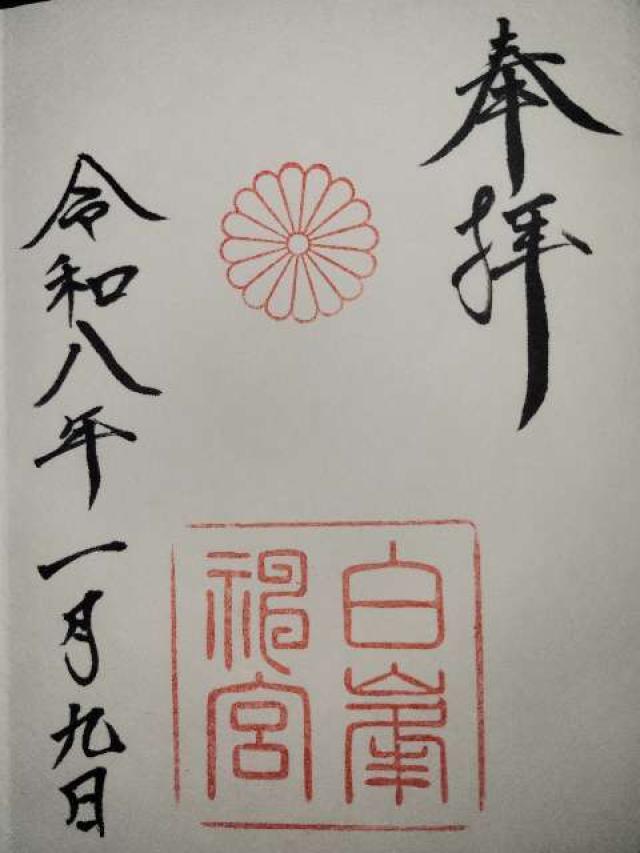 奉拝
白峯
神宮
令和八年一月九日